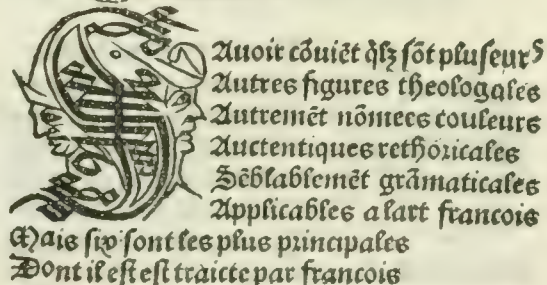 SAuoir cõuiẽt q̃lz sõt pluseurs
Autres figures theologales
Autremẽt nõmees couleurs
Auctentiques rethoricales
Sẽblablemẽt grãmaticales
Applicables a lart francois
Mais six sont les plus principales
Dont il est est traicte par francois